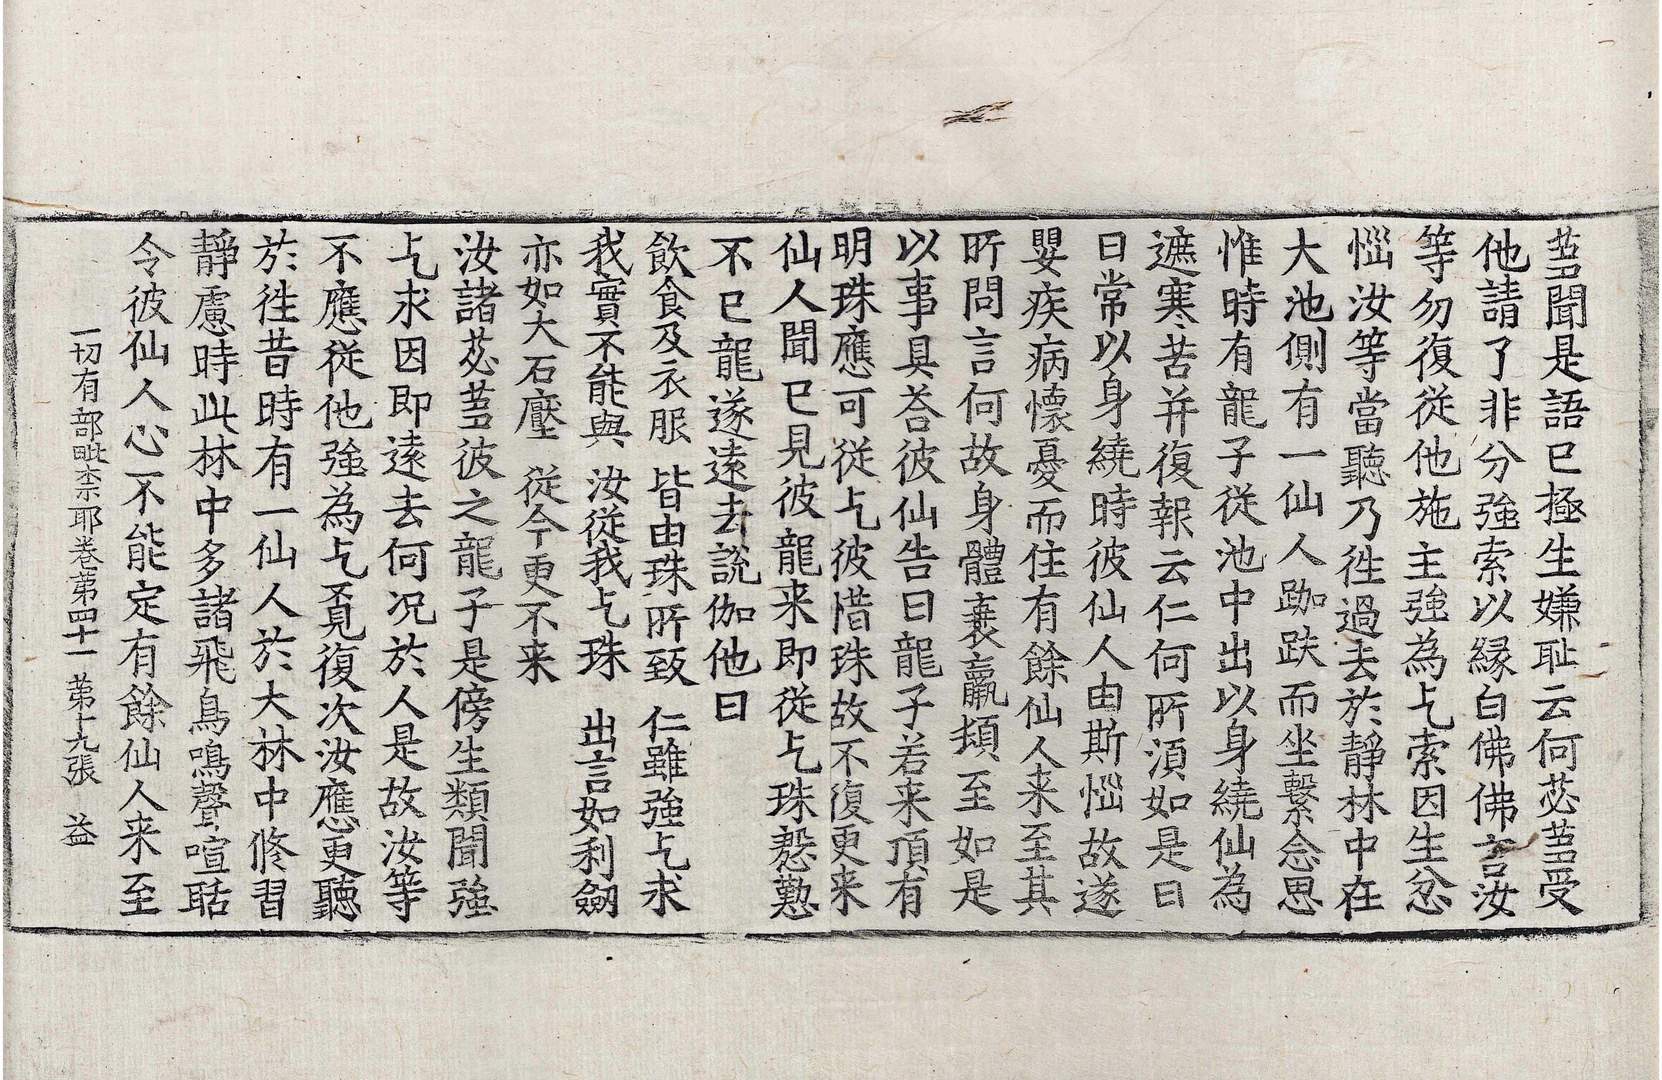 蒭聞是語已極生嫌恥云何苾蒭受
他請了非分強索以緣白佛佛言汝
等勿復從他施主強為乞索因生忿
惱汝等當聽乃往過去於靜林中在
大池側有一仙人跏趺而坐繫念思
惟時有龍子從池中出以身繞仙為
遮寒苦并復報云仁何所須如是日
日常以身繞時彼仙人由斯惱故遂
嬰疾病懷憂而住有餘仙人来至其
所問言何故身體羸瘦至如是
以事具荅彼仙告曰龍子若来頂有
明珠應可從乞彼惜珠故不復更来
仙人聞已見彼龍来即從乞珠慇懃
不已龍遂遠去說伽他曰
飲食及衣服 皆由珠所致 仁雖強乞求
我實不能與 汝從我乞珠 出言如利劒
亦如大石壓 從今更不来
汝諸苾蒭彼之龍子是傍生類聞強
乞求因即遠去何况於人是故汝等
不應從他強為乞覓復次汝應更聽
於往昔時有一仙人於大林中修習
靜慮時此林中多諸飛鳥鳴聲喧聒
令彼仙人心不能定有餘仙人来至
一切有部毗柰耶卷第四十一 第十九張 益